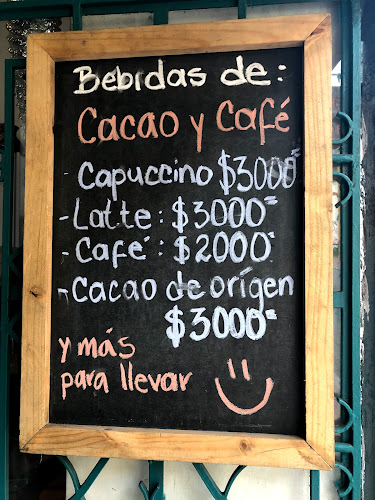 Bebidas de:
Cacao y Café
- Capuccino $3000=
- Latte: $3000=
- Café: $2000=
- Cacao de orígen
$3000=
y más
para llevar